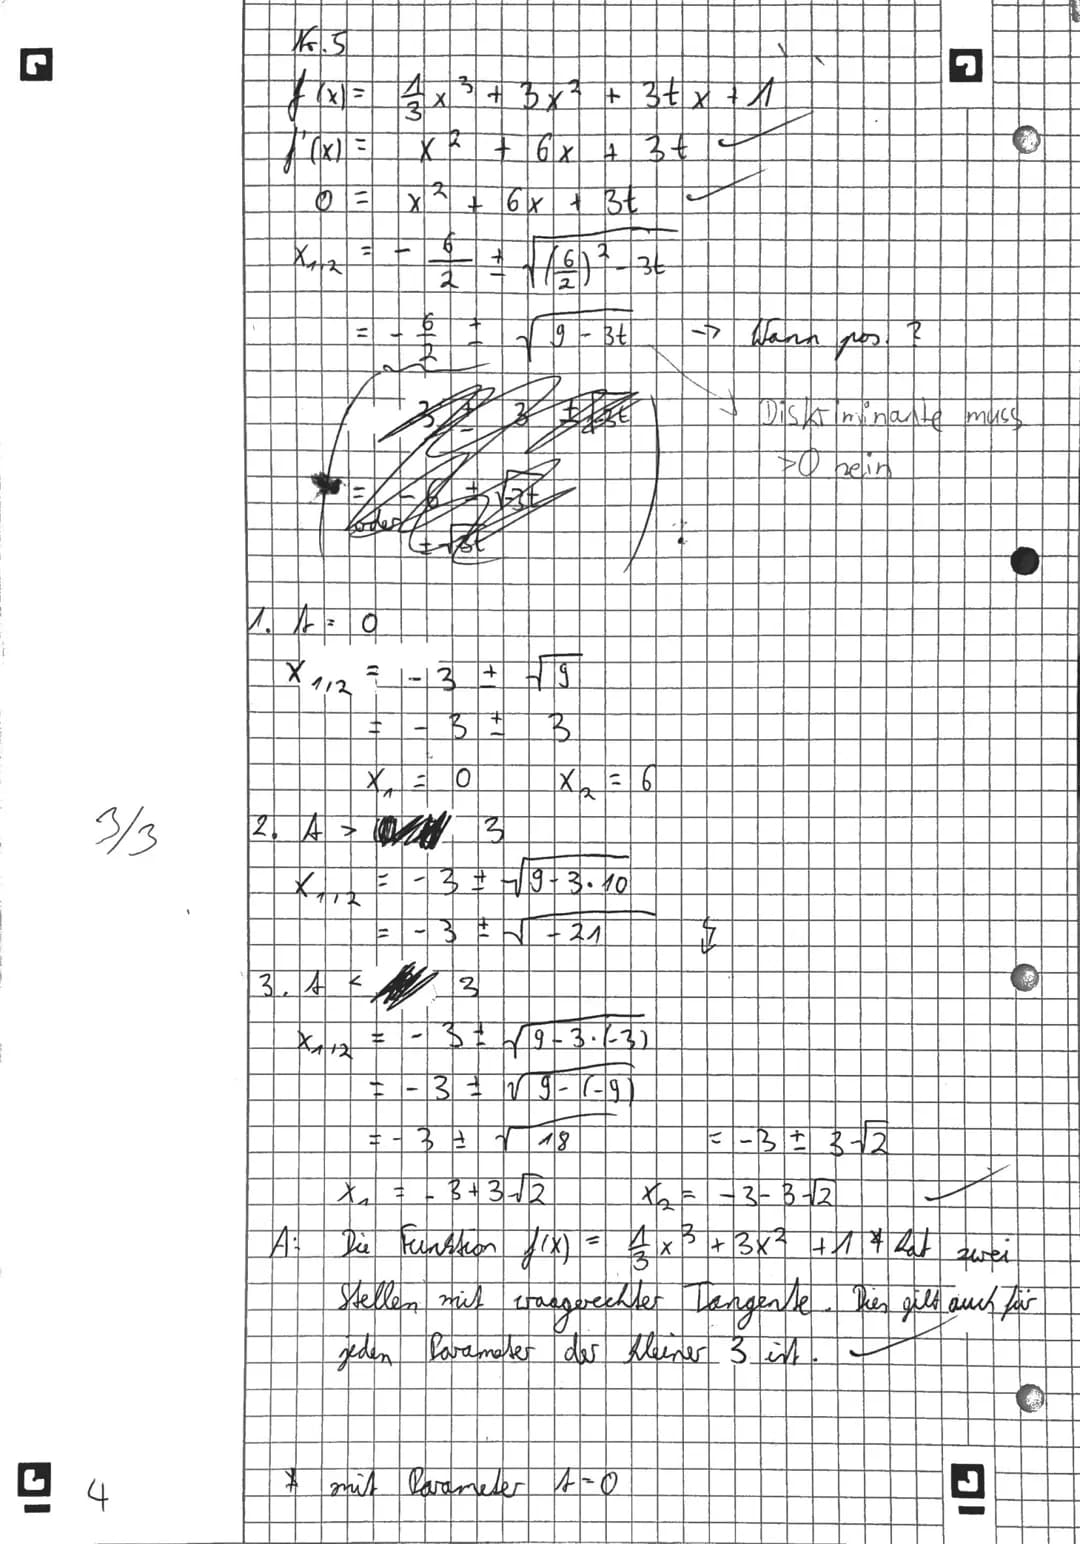 Nr. 5
f(x) = 1/3 x³ + 3x² + 3t x + 1
f'(x) = x² + 6x + 3t
0 = x² + 6x + 3t
x₁,₂ = - 6/2 ± √((6/2)² - 3t)
= - 6/2 ± √(9 - 3t) → Wann pos.?
Diskriminante muss
>0 sein
oder
1. t = 0
x₁,₂ = -3 ± √9
= -3 ± 3
x₁ = 0 x₂ = 6
3/3
2. t > 3
x₁,₂ = -3 ± √(9-3·10)
= -3 ± √(-21) ↯
3. t < 3
x₁,₂ = -3 ± √(9-3·(-3))
= -3 ± √(9-(-9))
= -3 ± √18 = -3 ± 3√2
x₁ = -3+3√2 x₂ = -3-3√2
A: Die Funktion f(x) = 1/3 x³ + 3x² + 1 * hat zwei
Stellen mit waagerechter Tangente. Dies gilt auch für
jeden Parameter der kleiner 3 ist.
* mit Parameter t=0
4